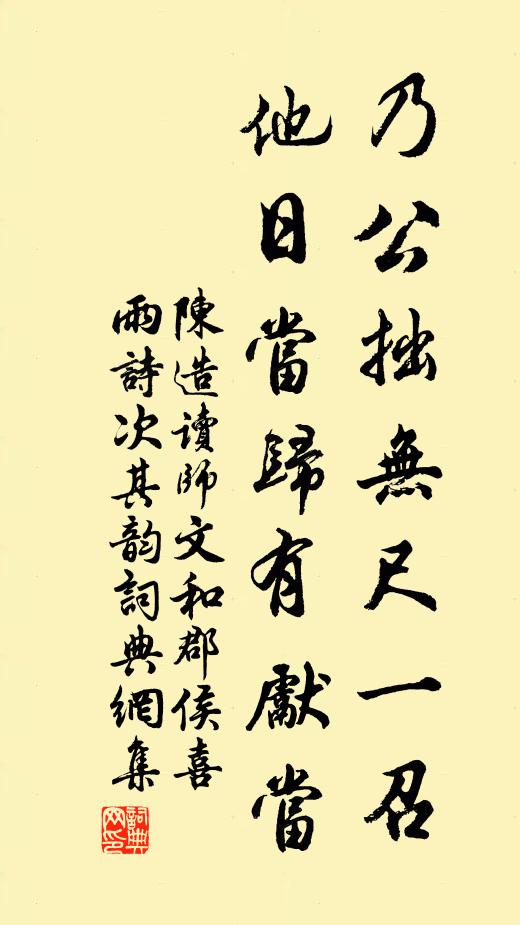 乃公拙無尺一召
他日當歸有獻當
陳造讀師文和郡侯喜
雨詩次其韵詞典網集
詞典
网印